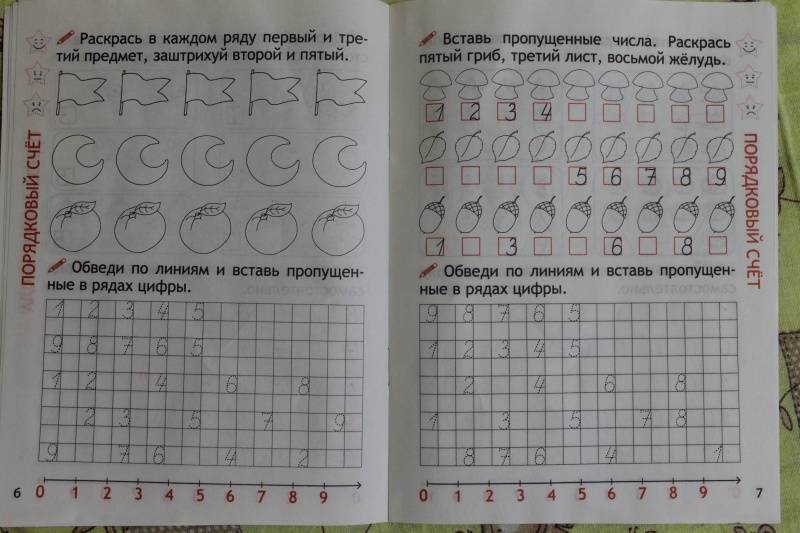 Раскрась в каждом ряду первый и тре-
тий предмет, заштрихуй второй и пятый.
ПОРЯДКОВЫЙ СЧЁТ
Обведи по линиям и вставь пропущен-
ные в рядах цифры.
1 2 3 4 5
9 8 7 6 5
1 2 4 6 8
2 3 5 7 9
9 7 6 4 2
0 1 2 3 4 5 6 7 8 9
6
Вставь пропущенные числа. Раскрась
пятый гриб, третий лист, восьмой жёлудь.
1 2 3 4
5 6 7 8 9
1 3 6 8
ПОРЯДКОВЫЙ СЧЁТ
Обведи по линиям и вставь пропущен-
ные в рядах цифры.
9 8 7 6 5
1 2 3 4 5
2 4 6 8
1 3 5 7 8
8 7 6 4 1
0 1 2 3 4 5 6 7 8 9
7